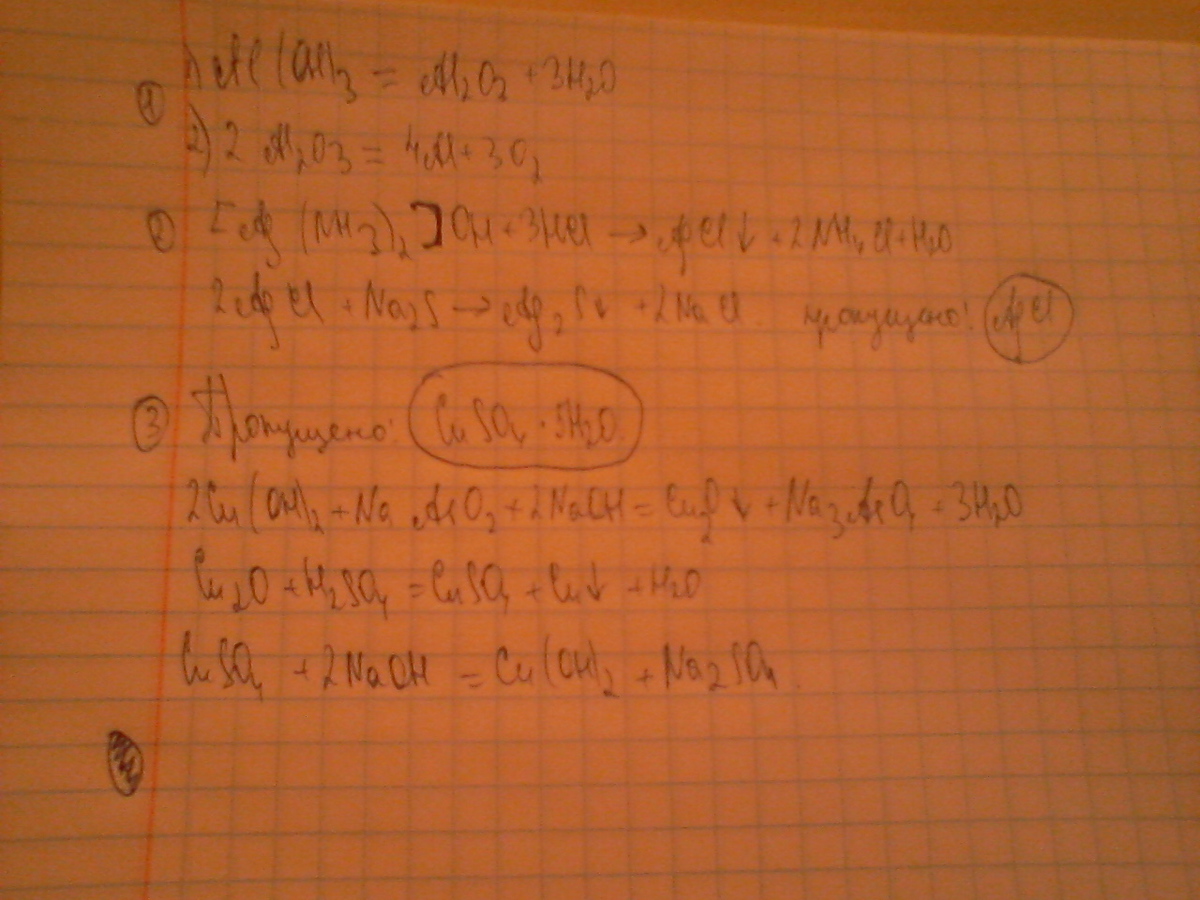 ① 1) Al(OH)₃ = Al₂O₃ + 3H₂O
2) 2 Al₂O₃ = 4Al + 3O₂
② [Ag(NH₃)₂]OH + 3HCl → AgCl↓ + 2NH₄Cl + H₂O
2AgCl + Na₂S → Ag₂S↓ + 2NaCl. пропущено: AgCl
③ Пропущено: CuSO₄ · 5H₂O.
2Cu(OH)₂ + Na AsO₂ + 2NaOH = Cu₂O↓ + Na₃AsO₄ + 3H₂O
Cu₂O + H₂SO₄ = CuSO₄ + Cu↓ + H₂O
CuSO₄ + 2NaOH = Cu(OH)₂ + Na₂SO₄.